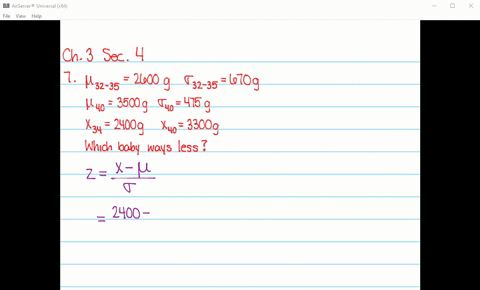 AirServer® Universal (x64)
File View Help
Ch. 3 Sec. 4
7. μ₃₂₋₃₅ = 2600 g σ₃₂₋₃₅ = 670g
μ₄₀ = 3500g σ₄₀ = 475 g
x₃₄ = 2400g x₄₀ = 3300g
Which baby ways less?
z = x − μ / σ
= 2400 −